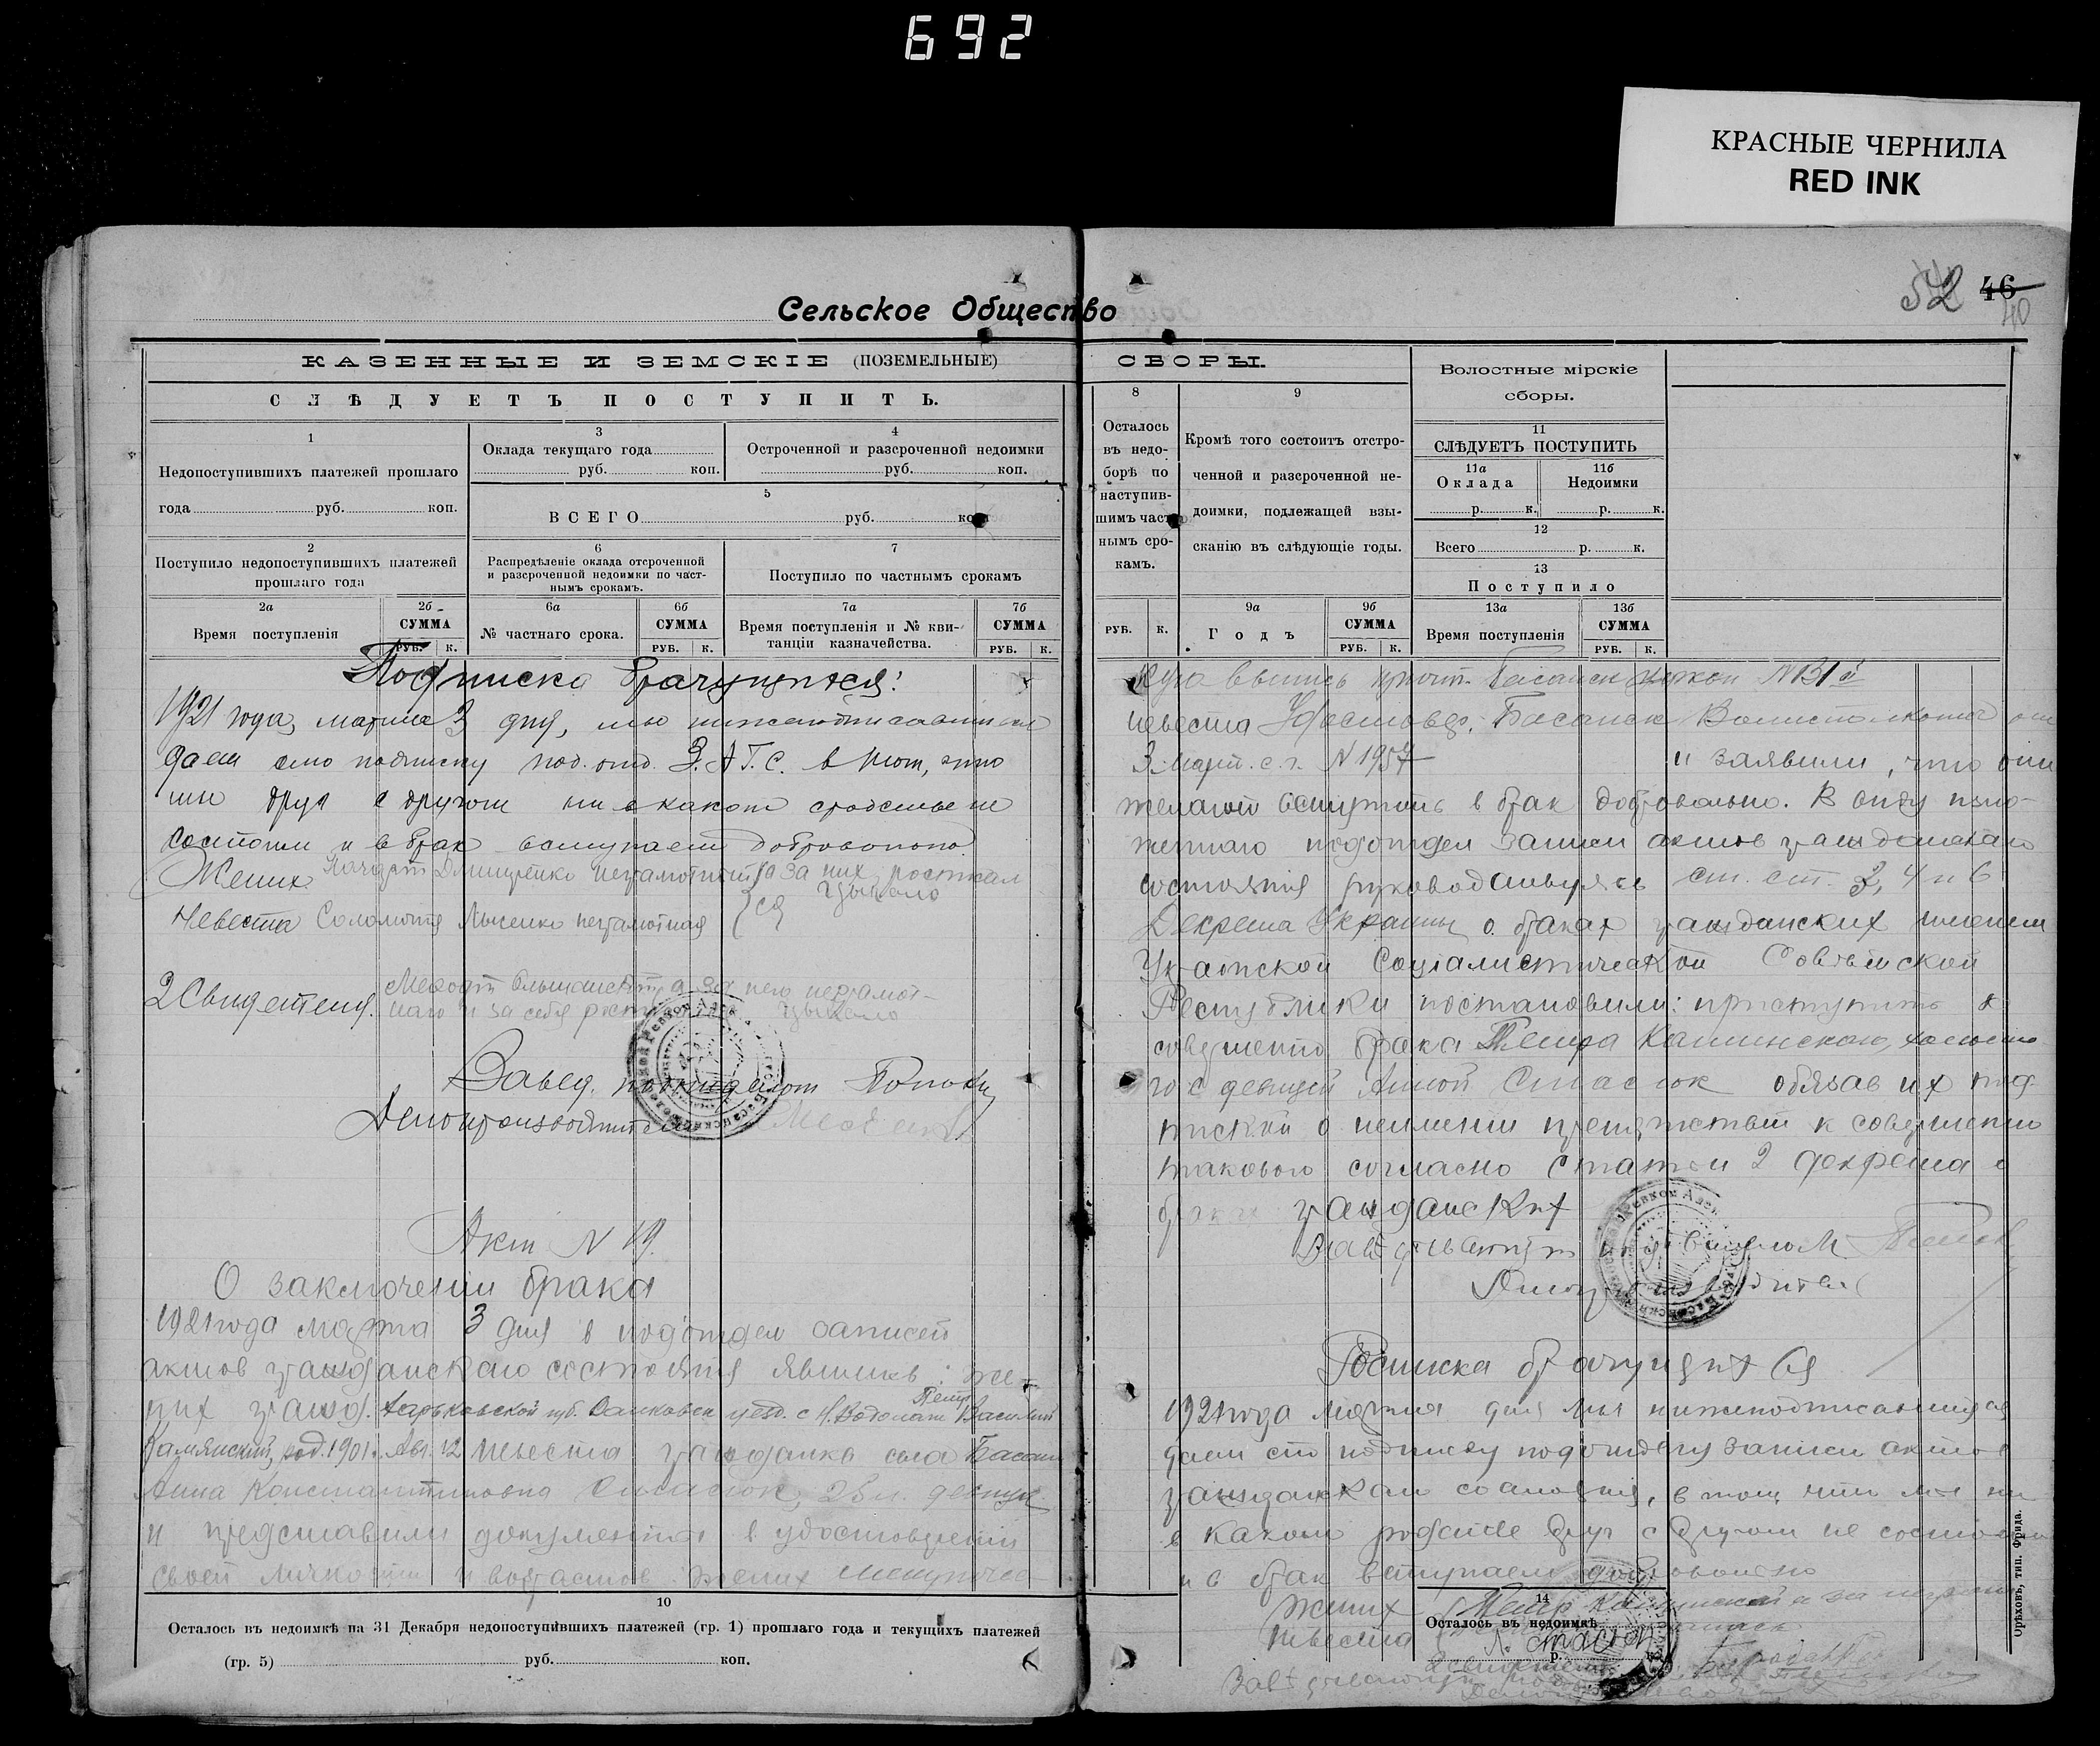 692
КРАСНЫЕ ЧЕРНИЛА
RED INK
52 46
40
Сельское Общество
КАЗЕННЫЕ И ЗЕМСКІЕ (ПОЗЕМЕЛЬНЫЕ)
СЛѢДУЕТЪ ПОСТУПИТЬ.
1
Недопоступившихъ платежей прошлаго
года руб. коп.
3
Оклада текущаго года
руб. коп.
4
Остроченной и разсроченной недоимки
руб. коп.
5
ВСЕГО руб. коп.
2
Поступило недопоступившихъ платежей
прошлаго года
6
Распредѣленіе оклада отсроченной
и разсроченной недоимки по част-
нымъ срокамъ.
7
Поступило по частнымъ срокамъ
2а
Время поступленія
2б
СУММА
РУБ. К.
6а
№ частнаго срока.
6б
СУММА
РУБ. К.
7а
Время поступленія и № кви-
танціи казначейства.
7б
СУММА
РУБ. К.
Подписка брачущихся:
1921 года, марта 3 дня, мы нижеподписавшиеся
даем сию подписку под. отд. З.А.Г.С. в том, что
мы друг с другом ни в каком сродстве не
состоим и в брак вступаем добровольно
Жених Дмитренко неграмотный а за них росписал
ся Цыкало
Невеста Соломия Лысенко неграмотная
2 Свидетеля. а за него неграмот-
наго и за себя Цыкало
Завед. подотделом Попов
Делопроизводитель
Акт N 19.
О заключении брака
1921 года марта 3 дня в подотдел записей
актов гражданскаго состояния явились: же-
них гражд. Харьковской губ. Валковск уезд. с Н. Водолаги Петр Василий
род. 1901 г. Авг. 12 невеста гражданка села Басани
Анна Константиновна Стасюк, 25 л. девица
и представили документы в удостоверении
своей личности и возрастов: жених
10
Осталось въ недоимкѣ на 31 Декабря недопоступившихъ платежей (гр. 1) прошлаго года и текущихъ платежей
(гр. 5) руб. коп.
СБОРЫ.
8
Осталось
въ недо-
борѣ по
наступив-
шимъ част-
нымъ сро-
камъ.
РУБ. К.
9
Кромѣ того состоитъ отсро-
ченной и разсроченной не-
доимки, подлежащей взы-
сканію въ слѣдующіе годы.
9а
Годъ
9б
СУММА
РУБ. К.
Волостные мірскіе
сборы.
11
СЛѢДУЕТЪ ПОСТУПИТЬ
11а
Оклада
р. к.
11б
Недоимки
р. к.
12
Всего р. к.
13
Поступило
13а
Время поступленія
13б
СУММА
РУБ. К.
N 31
невеста Удостовер. Басанск Волисполкома от
3 март. с. г. N 1957 и заявили, что они
желают вступить в брак добровольно. В виду изло-
женнаго подотдел записи актов гражданскаго
состояния руководствуясь ст. ст. 3, 4 и 6
Декрета Украины о браках гражданских именем
Украинской Социалистической Советской
Республики постановили: приступить к
совершению брака Петра Каминскаго, холосто-
го с девицей Анной Стасюк обязав их под-
пиской о неимении препятствий к совершению
такового согласно статьи 2 декрета о
браках гражданских
Заведывающий подотделом
Делопроизводитель
Подписка брачущихся
1921 года марта дня мы нижеподписавшиеся
даем сию подписку подотделу записи актов
гражданскаго состояния, в том, что мы ни
в каком родстве друг с другом не состоим
и в брак вступаем добровольно
Жених Петр Каминский а за неграм
Невеста А. Стасюк
14
Осталось въ недоимкѣ
р. к.
2 свидетеля
Орѣховъ, тип. Фрида.